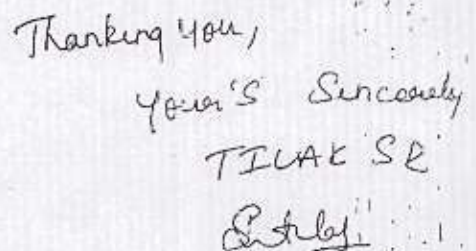 Thanking you,
Your's Sincerely
TILAK SR